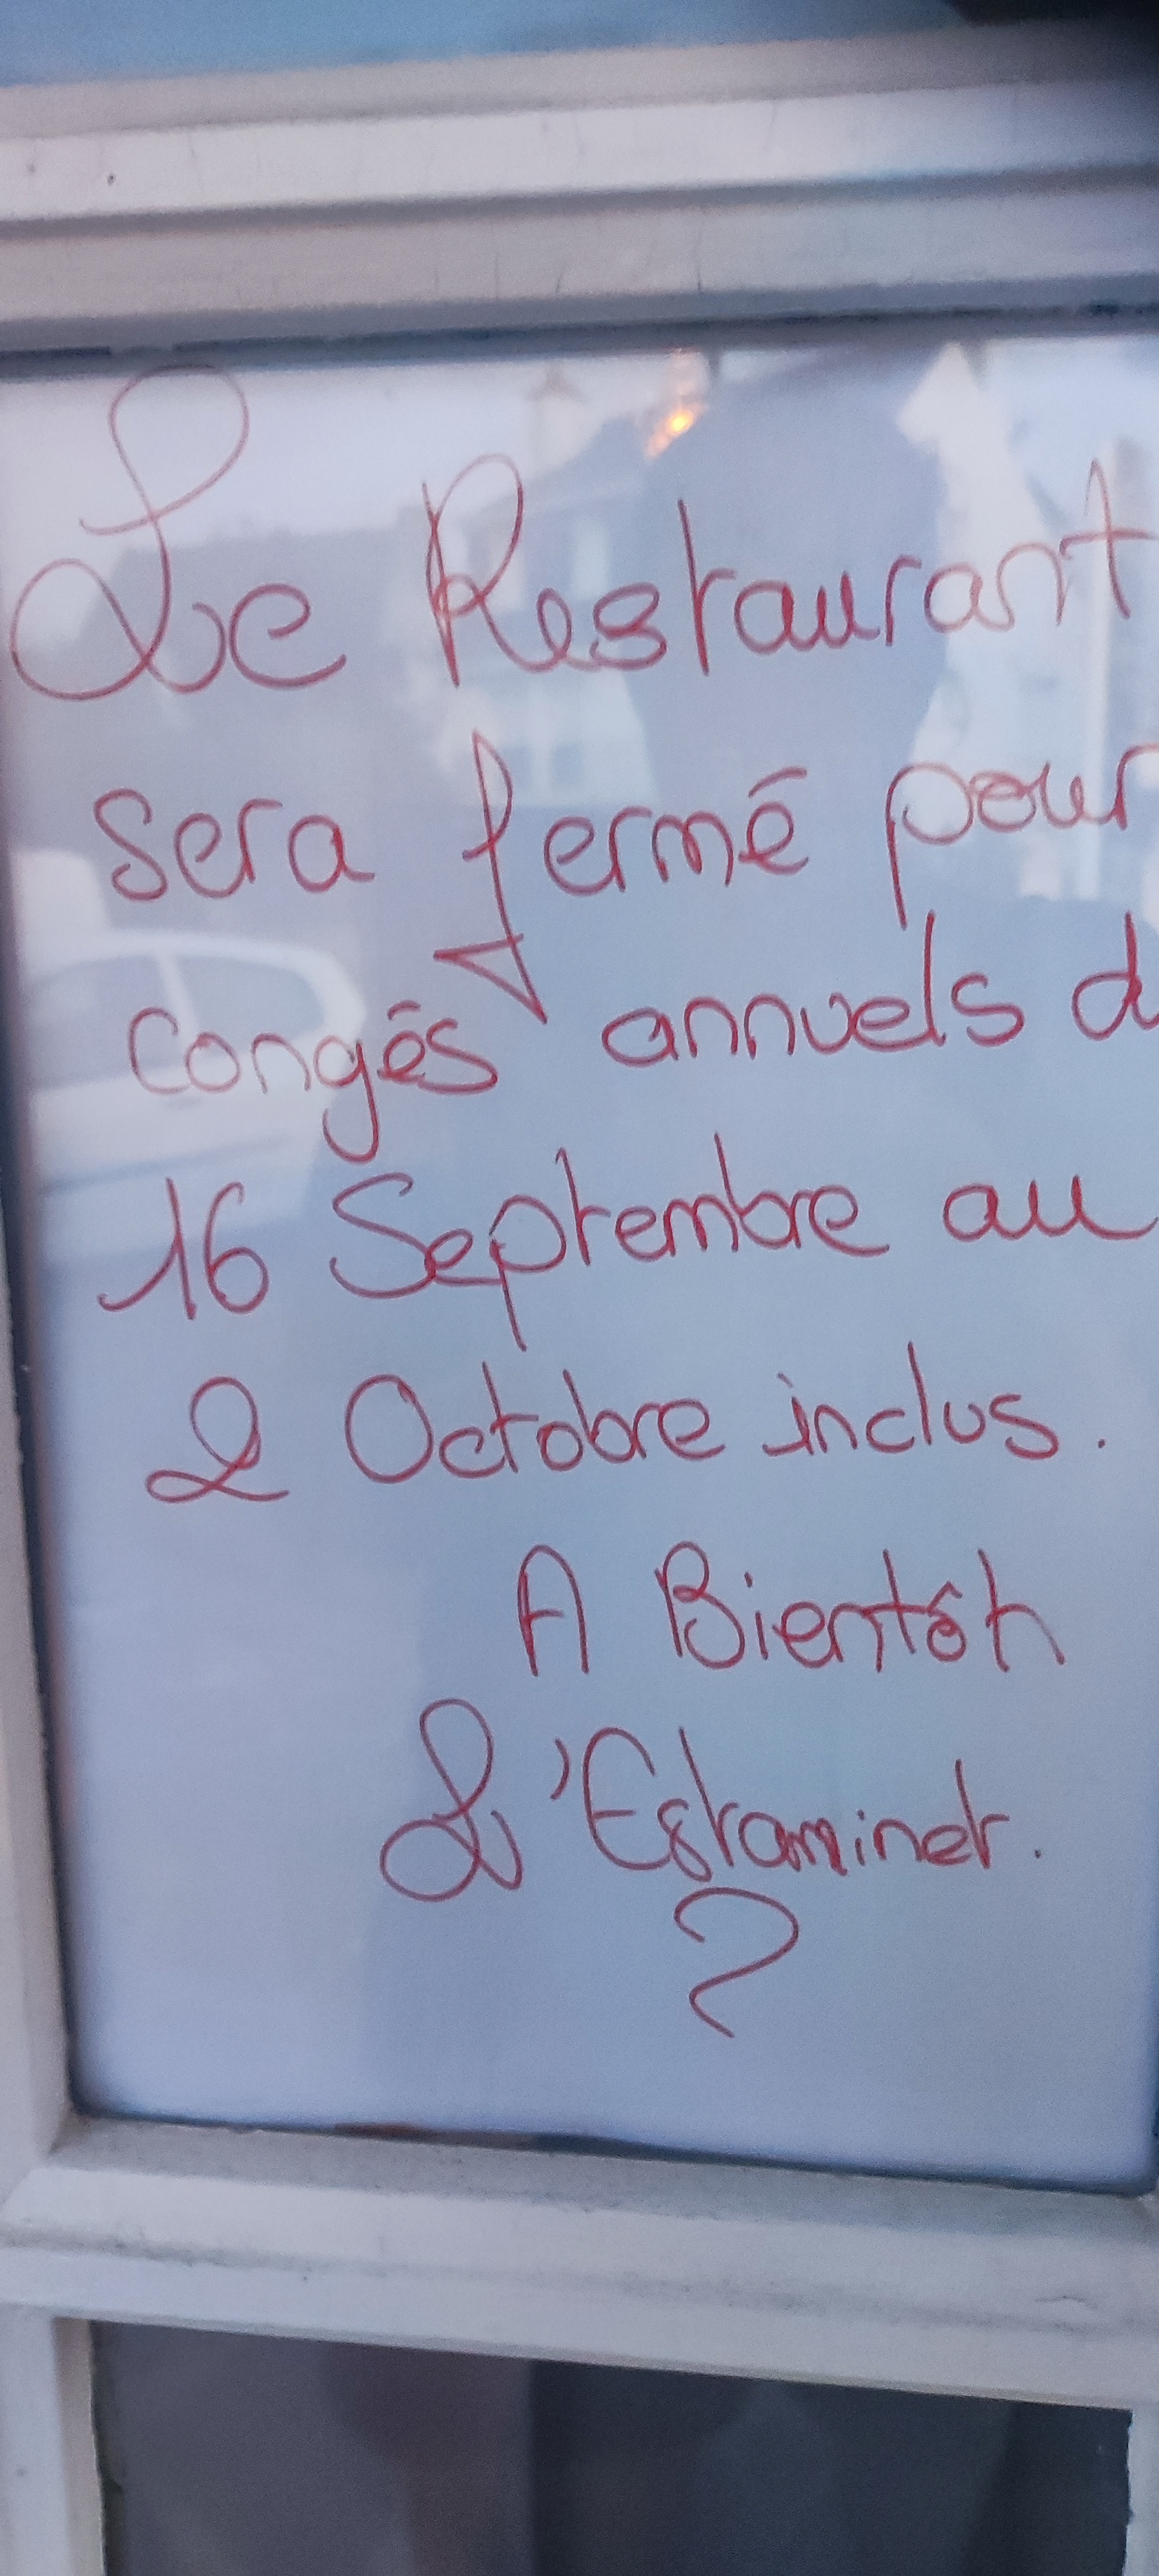 Le Restaurant
sera fermé pour
congés annuels du
16 Septembre au
2 Octobre inclus.
A Bientôt
L'Estaminet.